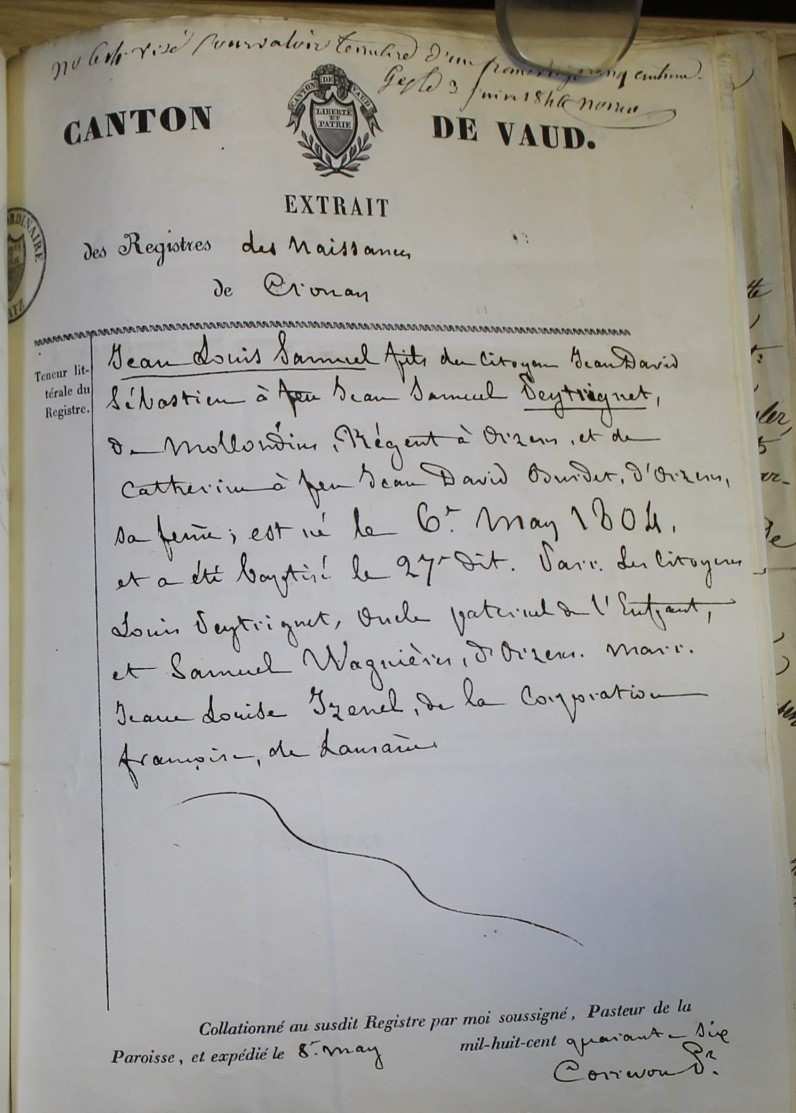 No 64 visé pour valoir timbre d'un franc
Gex le 3 juin 1846
CANTON DE VAUD
LIBERTÉ
ET
PATRIE
CANTON DE VAUD.
EXTRAIT
des Registres des Naissances
de Cronay
ORDINAIRE
Teneur lit-
térale du
Registre.
Jean Louis Samuel fils du Citoyen Jean David
Sébastien à feu Jean Samuel Peytrignet,
de Mollondins, Régent à Orzens, et de
Catherine à feu Jean David Burdet, d'Orzens,
sa feme; est né le 6r. May 1804,
et a été baptisé le 27e dit. Parr. les Citoyens
Louis Peytrignet, Oncle paternel de l'Enfant,
et Samuel Wagnières, d'Orzens. Marr.
Jeane Louise, de la Corporation
françoise, de Lausañe
Collationné au susdit Registre par moi soussigné, Pasteur de la
Paroisse, et expédié le 8r. may mil-huit-cent quarante-six
Correvon Pr.